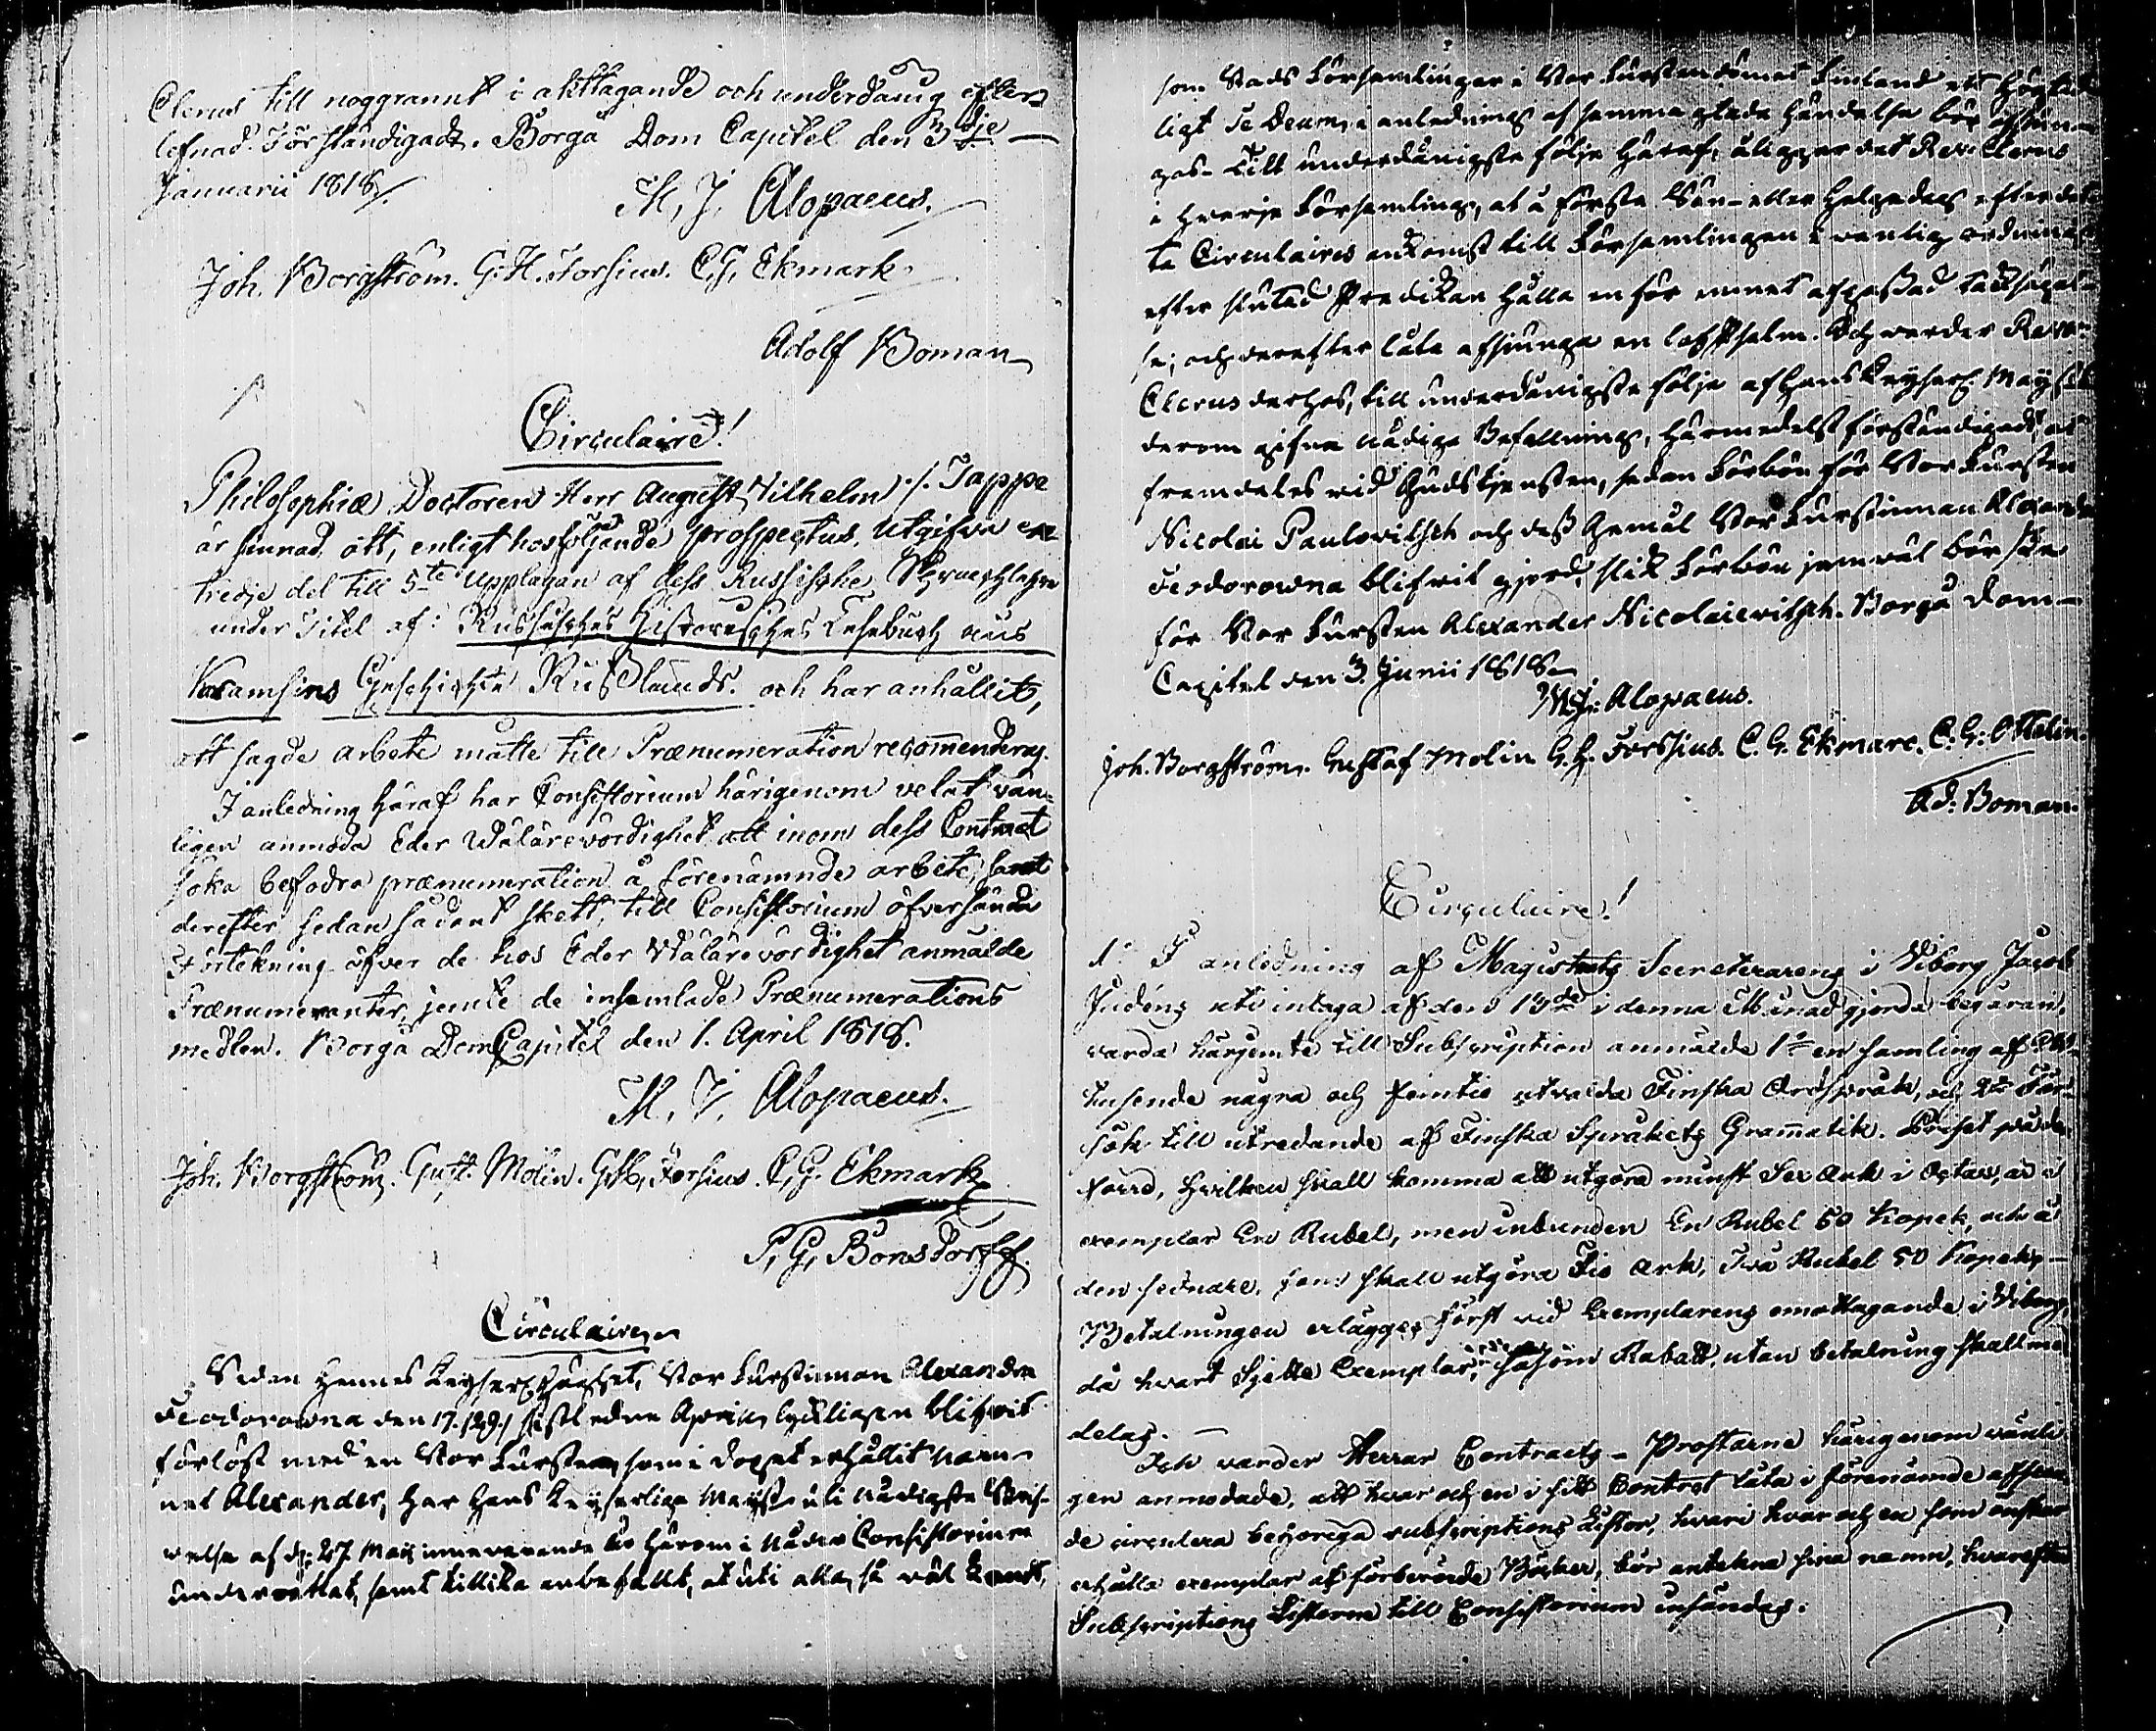 Clerus till noggrannt i akttagande och underdånig efter
lefnad Förständigadt. Borgå Dom Capitel den 3dje
Januarii 1818.
M. J. Alopaeus.
Joh. Borgström. G. H. Forsius. C. G. Ekmark
Adolf Boman
Circulaire!
Philosophiæ Doctoren Herr August Wilhelm Tappe
är sinnad att, enligt hosföljande prospectus, utgifva en
tredje del till 5te Upplagan af dess Russische Sprachlehre
under Titel af: Russisches Historisches Lesebuch aus
Karamsins Geschichte Rußlands. och har anhållit,
att sagde arbete måtte till Prænumeration recomenderas.
I anledning häraf har Consistorium härigenom velat vän-
ligen anmoda Eder Wälärevördighet att inom dess Contract
söka befodra prænumeration å förenämnde arbete, samt
derefter sedan sådant skett, till Consistorium öfversända
Förtekning öfver de hos Eder Wälärevördighet anmälde
Prænumeranter, jemte de insamlade Prænumerations
medlen. Borgå Dom Capitel den 1. April 1818.
M. J. Alopaeus.
Joh. Borgström. Gust. Molin. G. H. Forsius. C. G. Ekmark
P. G. Bonsdorff.
Circulaire
Sedan Hennes Keyserl. Höghet, Stor Furstinnan Alexandra
Feodorowna den 17./29./ sistledne April, lyckligen blifvit
förlöst med en Stor Furste, som i dopet erhållit nam-
net Alexander, har Hans Keyserliga Mayst. uti nådigste Skrif-
velse af d. 27 Maji innevarande år härom i nåder Consistorium
underrettat, samt tillika anbefallt, at uti alla, så väl Lands,
som Stads Församlingar i Stor Furstendömet Finland ett Högtid-
ligt Te Deum, i anledning af samma glada händelse bör afsjun-
gas. Till underdånigste följe häraf, åligger det Rev. Clerus
i hwarje Församling, at å första Sön- eller Helgedag efter det-
ta Circulaires ankomst till Församlingen i vanlig ordning
efter slutad Predikan hålla en för ämnet afpassad tacksägel-
se; och derefter låta afsjunga en lof Psalm. Och warder Rev.
Clerus derhos, till underdånigste följe af Hans Keyserl. Mayst.
derom gifne nådige Befallning, härmedelst förständigadt, at
framdeles vid Gudstjensten, sedan Förbön för Stor Fursten
Nicolai Paulowitsch och dess Gemål Stor Furstinnan Alexandra
Feodorowna blifvit gjord, slik Förbön jemväl bör ske
för Stor Fursten Alexander Nicolaiewitsch. Borgå Dom-
Capitel den 3. Junii 1818
M. J. Alopaeus.
Joh. Borgström. Gustaf Molin G. H. Forssius. C. G. Ekmarc. C. G. Ottelin.
Ad. Boman.
Circulaire!
I anledning af Magistrats Secreterarens i Wiborg Jacob
Judéns uti inlaga af den 13de i denna Månad gjorda begäran,
varda härjemte till Subscription anmälde 1o en samling af
tusende några och femtio utvalda Finska Ordspråk, och 2o För-
sök till utredande af Finska Språkets Gramatik. Priset på de
förra, hvilken skall komma att utgöra minst Sex Ark i Octav, är å
exemplar En Rubel, men inbunden En Rubel 50 Kopek, och å
den sednare, som skall utgöra Tio Ark, Två Rubel 50 Kopek.
Betalningen erlägges först vid Exemplarens emottagande i Wiborg,
då hvart Sjette Exemplar, såsom Rabatt, utan betalning skall med
delas. —
Och varder Herrar Contracts-Prostarne härigenom vänli-
gen anmodade, att hvar och en i sitt Contract låta i förenämde afseen
de circulera behöriga subscriptions Listor, hvari hvar och en som önskar
erhålla exemplar af förberörde Böcker, bör antekna sina namn, hvarefter
Subscriptions Listorne till Consistorium insändas.